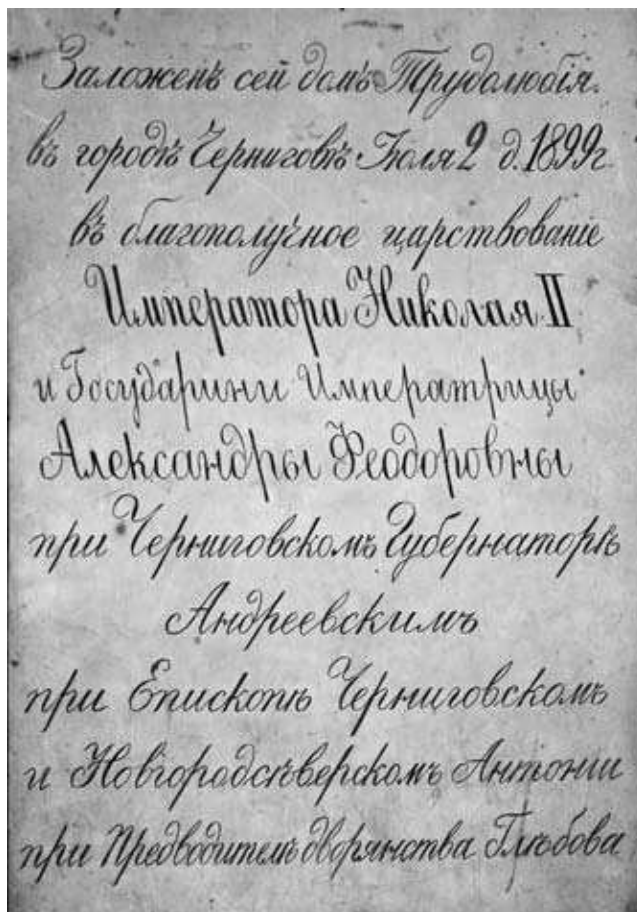 Заложенъ сей домъ Трудолюбія.
въ городѣ Черниговѣ Іюля 2 д. 1899 г.
въ благополучное царствованіе
Императора Николая II
и Государини Императрицы
Александры Феодоровны
при Черниговскомъ Губернаторѣ
Андреевскимъ
при Епископѣ Черниговскомъ
и Новгородсѣверскомъ Антонии
при Предводителѣ дворянства Глѣбова